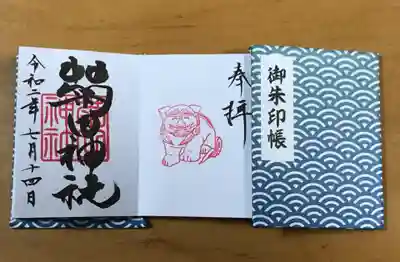 御朱印帳
奉拝
神社
令和二年七月十四日